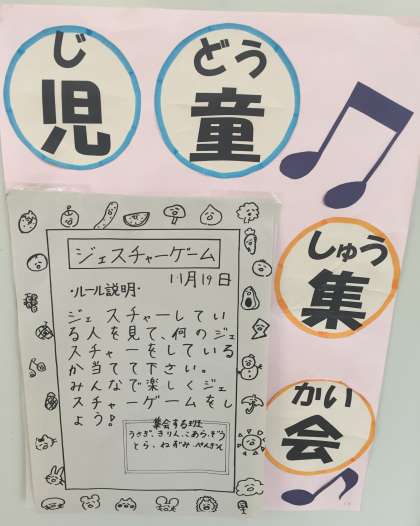 じ
児
どう
童
しゅう
集
かい
会
ジェスチャーゲーム
11月19日
・ルール説明・
ジェスチャーしてい
る人を見て、何のジェ
スチャーをしている
か当てて下さい。
みんなで楽しくジェ
スチャーゲームをし
ょう!
集会する班
うさぎ、きりん、こあら、ぞう
とら、ねずみ、ぺんぎん